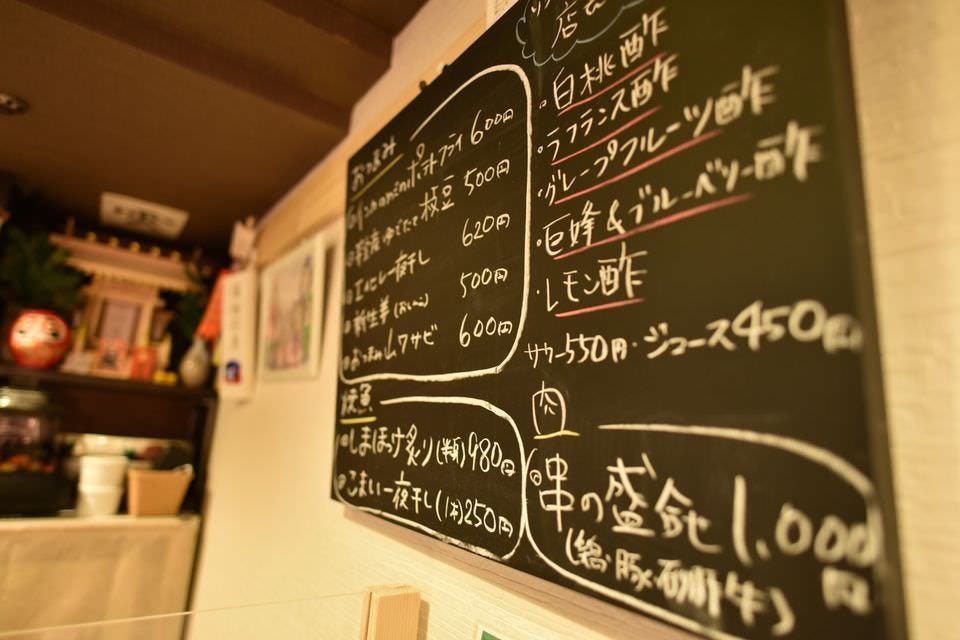 おつまみ
ポテトフライ 600円
ゆでたて枝豆 500円
一夜干し 620円
新生姜 500円
おつまみ山ワサビ 600円
焼魚
しまほっけ炙り(半身)980円
こまい一夜干し(1本)250円
店長
・白桃酢
・ラフランス酢
・グレープフルーツ酢
・巨峰&ブルーベリー酢
・レモン酢
サワー550円・ジュース450円
肉
串の盛合 1,000円
(鶏・豚・砂肝・牛)